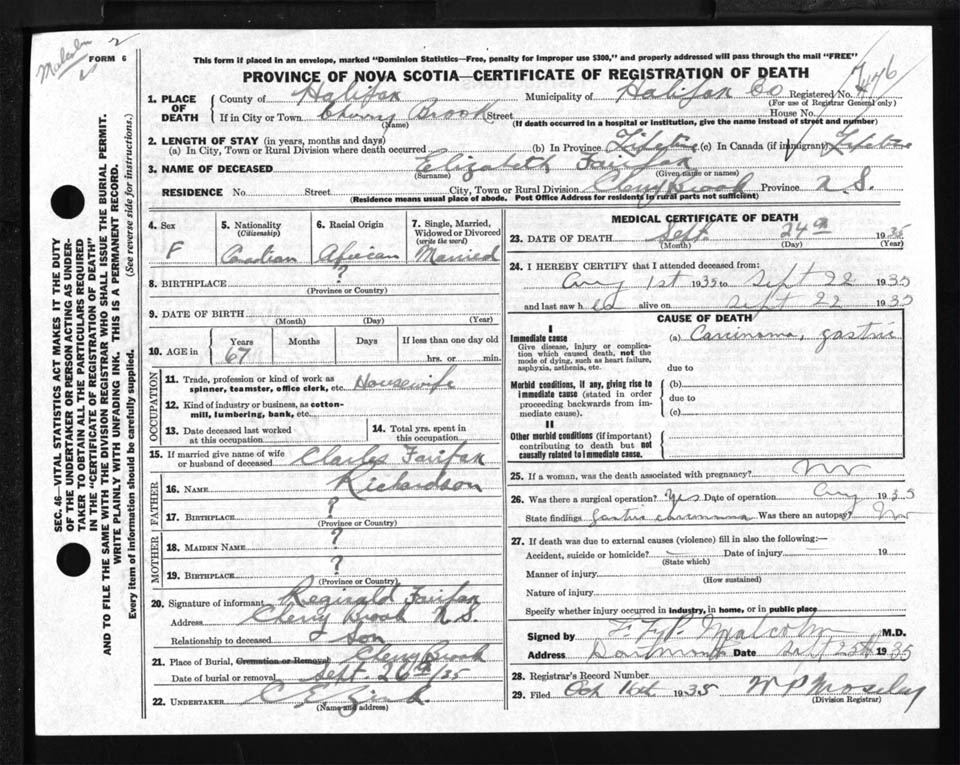 Malcolm
2
FORM 6
This form if placed in an envelope, marked "Dominion Statistics—Free, penalty for improper use $300," and properly addressed will pass through the mail "FREE"
PROVINCE OF NOVA SCOTIA—CERTIFICATE OF REGISTRATION OF DEATH
1. PLACE OF DEATH
County of Halifax Municipality of Halifax Co Registered No.
(For use of Registrar General only)
If in City or Town Cherry Brook Street House No.
(Name) (If death occurred in a hospital or institution, give the name instead of street and number)
2. LENGTH OF STAY (in years, months and days)
(a) In City, Town or Rural Division where death occurred (b) In Province Lifetime (c) In Canada (if immigrant) Lifetime
3. NAME OF DECEASED Elizabeth Fairfax
(Surname) (Given name or names)
RESIDENCE No. Street City, Town or Rural Division Cherry Brook Province N.S.
(Residence means usual place of abode. Post Office Address for residents in rural parts not sufficient)
4. Sex
F
5. Nationality
(Citizenship)
Canadian
6. Racial Origin
African
7. Single, Married, Widowed or Divorced
(write the word)
Married
8. BIRTHPLACE ?
(Province or Country)
9. DATE OF BIRTH
(Month) (Day) (Year)
10. AGE in Years Months Days If less than one day old
67 hrs. or min.
OCCUPATION
11. Trade, profession or kind of work as spinner, teamster, office clerk, etc. Housewife
12. Kind of industry or business, as cotton-mill, lumbering, bank, etc.
13. Date deceased last worked at this occupation
14. Total yrs. spent in this occupation
15. If married give name of wife or husband of deceased Fairfax
FATHER
16. NAME Richardson
17. BIRTHPLACE ?
(Province or Country)
MOTHER
18. MAIDEN NAME ?
19. BIRTHPLACE ?
(Province or Country)
20. Signature of informant Reginald Fairfax
Address Cherry Brook N.S.
Relationship to deceased Son
21. Place of Burial, Cremation or Removal Cherry Brook
Date of burial or removal Sept. 26th/35
22. UNDERTAKER
(Name and address)
MEDICAL CERTIFICATE OF DEATH
23. DATE OF DEATH Sept. 24th 1935
(Month) (Day) (Year)
24. I HEREBY CERTIFY that I attended deceased from:
Aug 1st 1935 to Sept 22 1935
and last saw h er alive on Sept 22 1935
CAUSE OF DEATH
I
Immediate cause (a) Carcinoma, gastric
Give disease, injury or complication which caused death, not the mode of dying, such as heart failure, asphyxia, asthenia, etc.
due to
Morbid conditions, if any, giving rise to immediate cause (stated in order proceeding backwards from immediate cause).
(b)
due to
(c)
II
Other morbid conditions (if important) contributing to death but not causally related to immediate cause.
25. If a woman, was the death associated with pregnancy? No
26. Was there a surgical operation? Yes Date of operation Aug 1935
State findings gastric carcinoma Was there an autopsy? No
27. If death was due to external causes (violence) fill in also the following:—
Accident, suicide or homicide? Date of injury 19
(State which)
Manner of injury
(How sustained)
Nature of injury
Specify whether injury occurred in industry, in home, or in public place
Signed by Malcolm M.D.
Address Dartmouth Date Sept 25th 1935
28. Registrar's Record Number
29. Filed Oct 16th 1935 W P Moseley
(Division Registrar)
SEC. 46—VITAL STATISTICS ACT MAKES IT THE DUTY
OF THE UNDERTAKER OR PERSON ACTING AS UNDER-
TAKER TO OBTAIN ALL THE PARTICULARS REQUIRED
IN THE "CERTIFICATE OF REGISTRATION OF DEATH"
AND TO FILE THE SAME WITH THE DIVISION REGISTRAR WHO SHALL ISSUE THE BURIAL PERMIT.
WRITE PLAINLY WITH UNFADING INK. THIS IS A PERMANENT RECORD.
Every item of information should be carefully supplied. (See reverse side for instructions.)